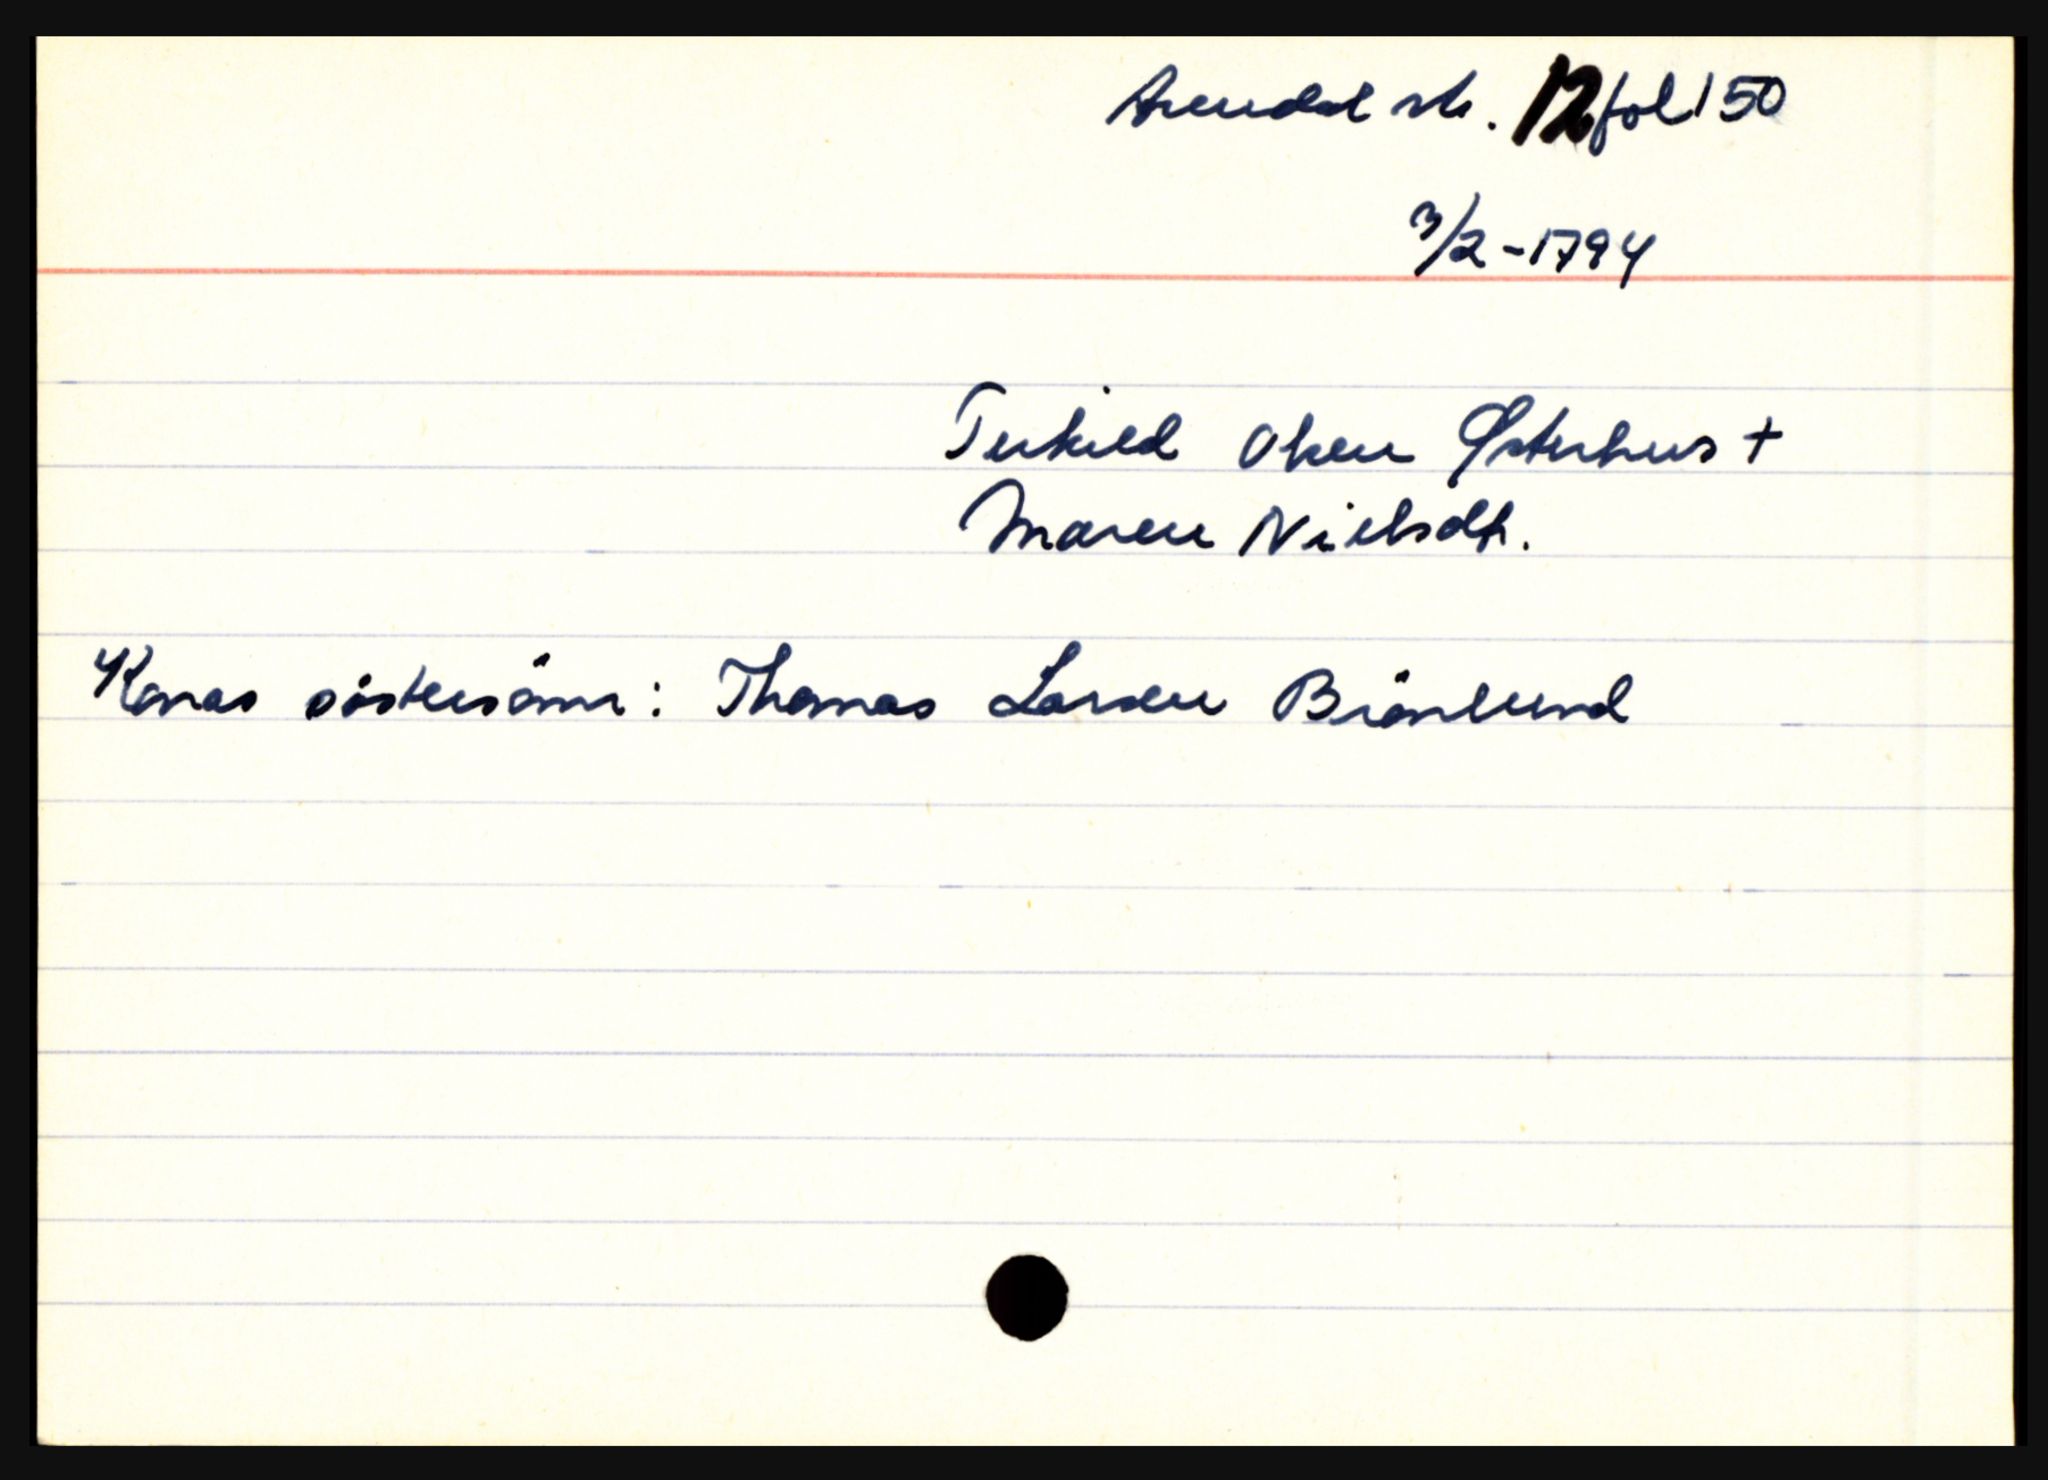 Arendal sk. 12 fol 150
3/2-1794
Terkild Olsen Østerhus +
Maren Nielsdt.
Konas söstersönn: Thomas Larsen Brönlund